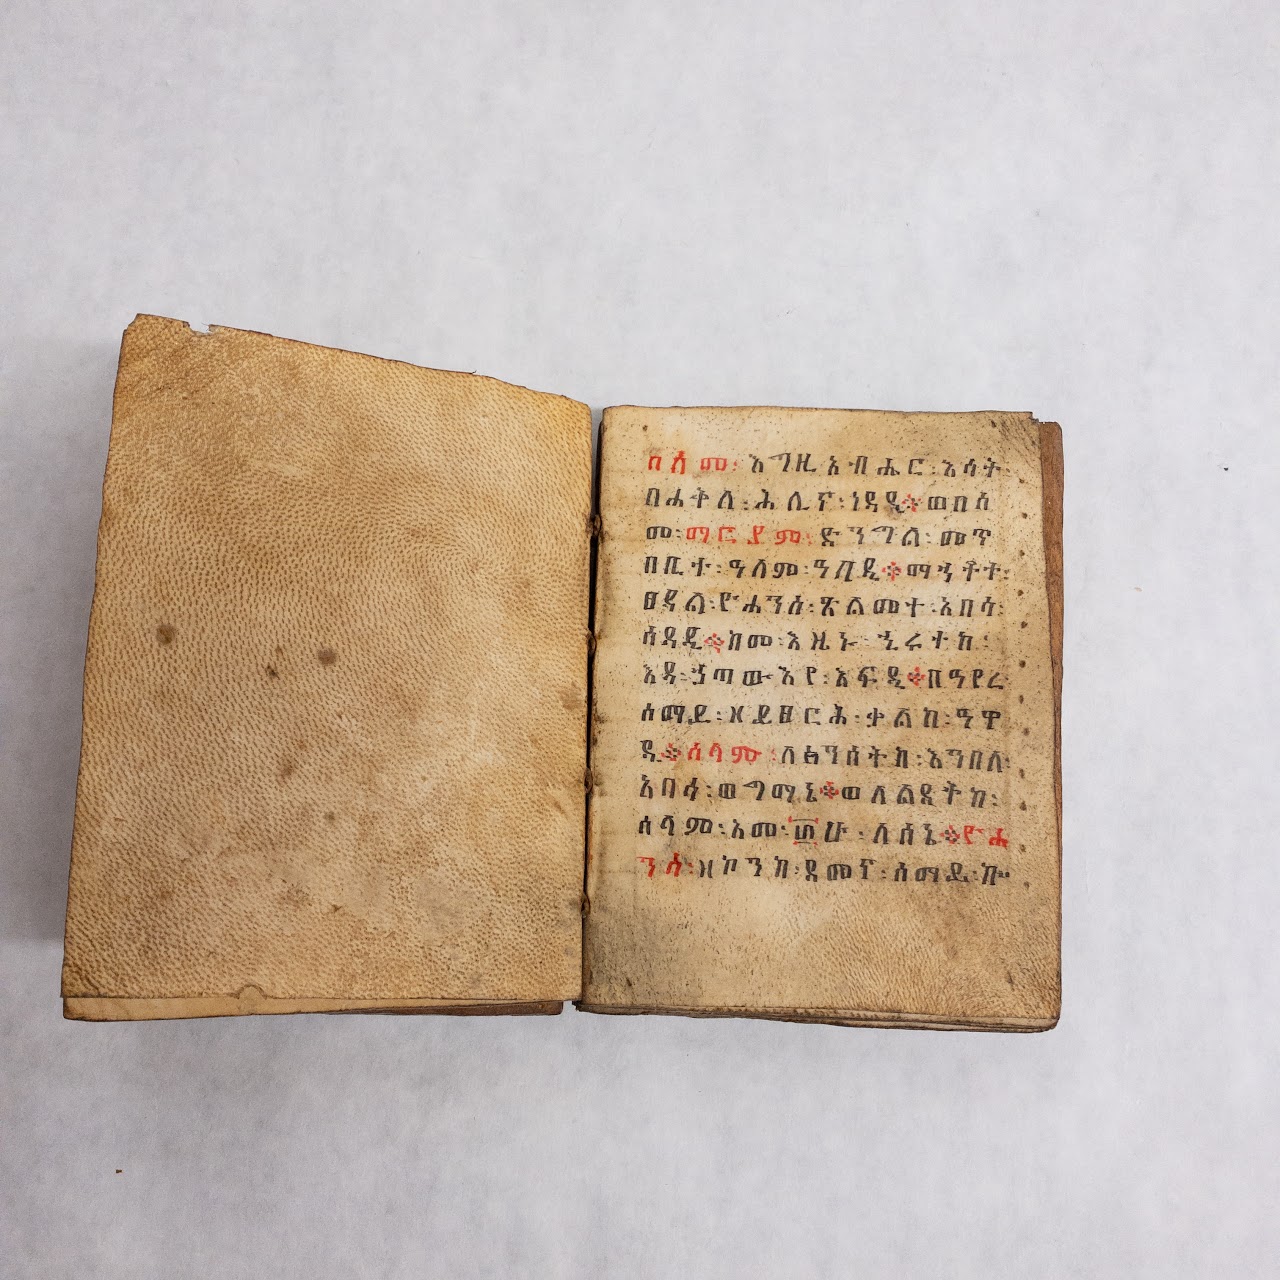 በስመ፡ እግዚአብሔር፡ እሳት፡
በሐቅለ፡ ሕሊና፡ ነዳዲ፨ ወበስ
መ፡ ማርያም፡ ድንግል፡ መጥ
በቢተ፡ ዓለም፡ ዓቢዲ፨ ማኅቶተ፡
ፀዳል፡ ዮሐንስ፡ ጽልመተ፡ አበሳ፡
ሰዳዲ፨ ከመ፡ እዜኑ፡ ኂሩተከ፡
እዳ፡ ኃጣውእየ፡ እፍዲ፨ በዓየረ
ሰማይ፡ ዘይፀርሕ፡ ቃልከ፡ ዓዋ
ዲ፨ ሰላም፡ ለፅንሰትከ፡ እንበለ፡
አበሳ፡ ወግማኔ፨ ወለልደትከ፡
ሰላም፡ አመ፡ ፴ሁ፡ ለሰኔ፨ ዮሐ
ንስ፡ ዘኮንከ፡ ደመና፡ ሰማይ፡